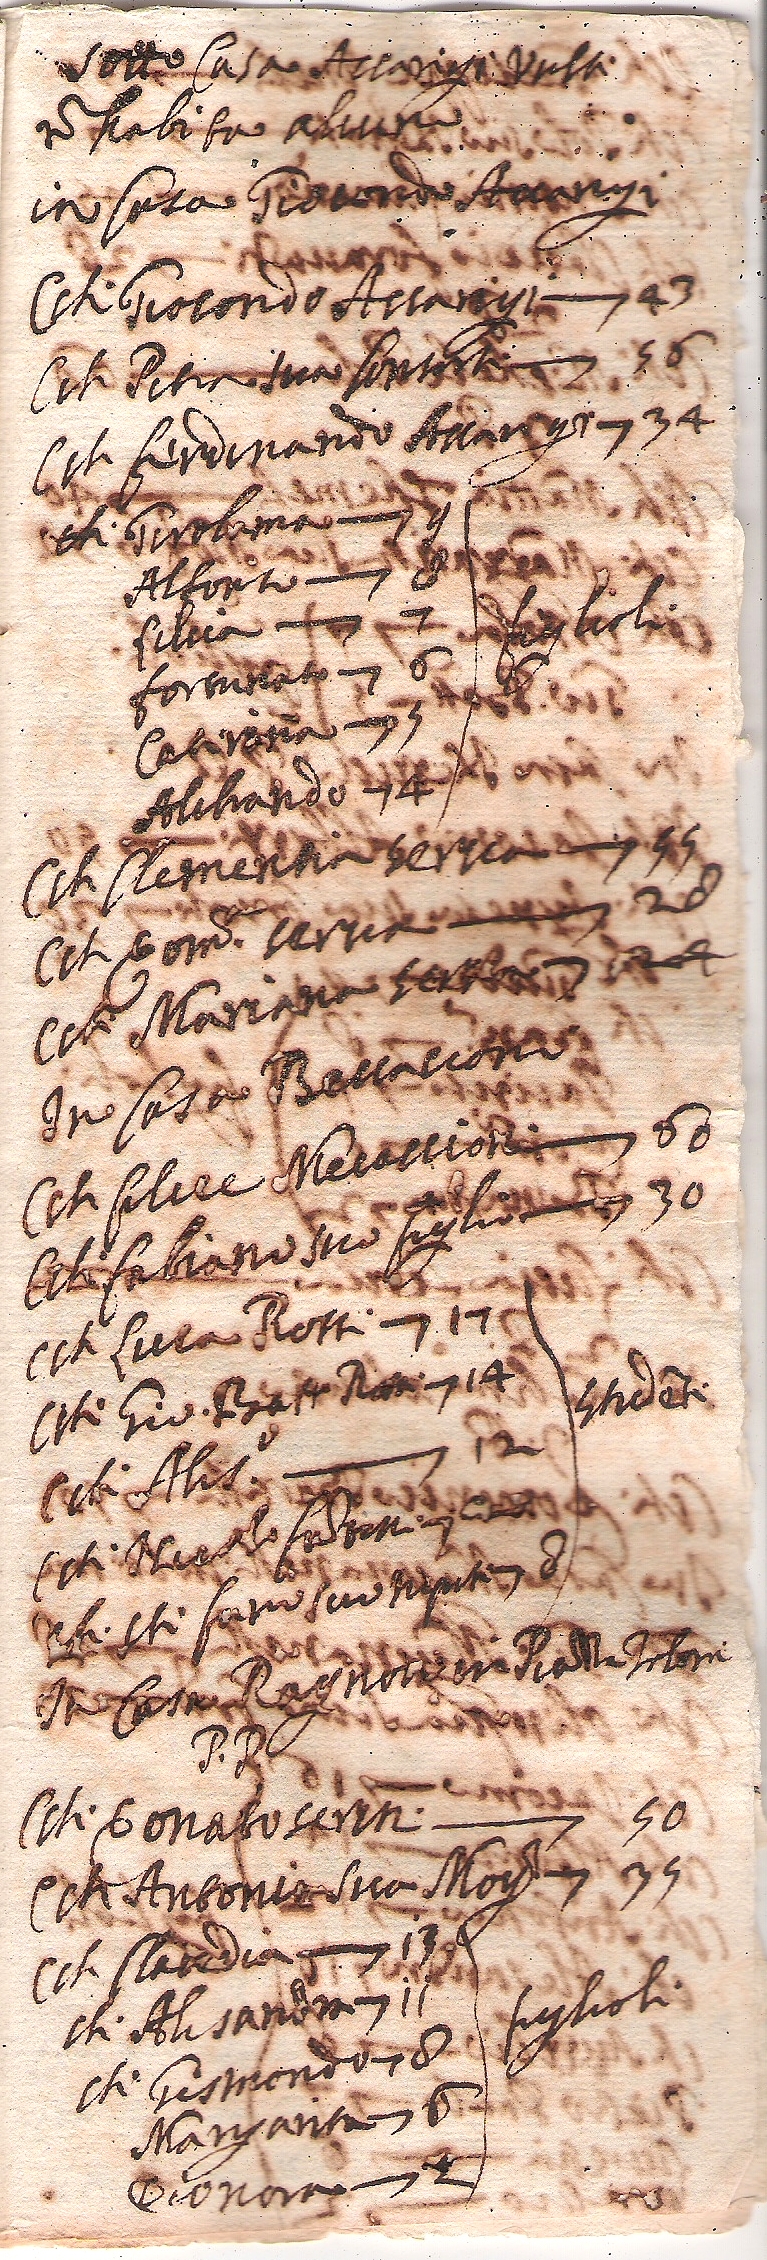 sotto Casa Accarigi
nō habita alcuno
in Casa Giocondo Accarigi
CCh Giocondo Accarigi 43
CCh Petra sua Consorte 56
CCh Ferdinando Accarigi 34
Ch Girolama 9
Alfonso 8
Silvia 7 figlioli
Fortunato 6 6
Caterina 5
Alibrando 4
CCh Clementia serva 55
CCh Domca serva 28
CCh Mariana serva 24
In Casa Beccaccioni
CCh felice Mecaccioni 60
CCh fabiano suo figlio 30
CCh Luca Rossi 17
CCh Gio. Batt Rossi 14 studēti
CCh Aless 12
CCh Niccolo
Ch suo nepote 8
In Casa Ragnoni in Piazza Tolomei
P.P.
CCh Donato 50
CCh Antonia sua Mogl 35
CCh Claudia 13
Ch Alisandra 11 figlioli
Ch Gismondo 8
Margarita 6
Dionora 2